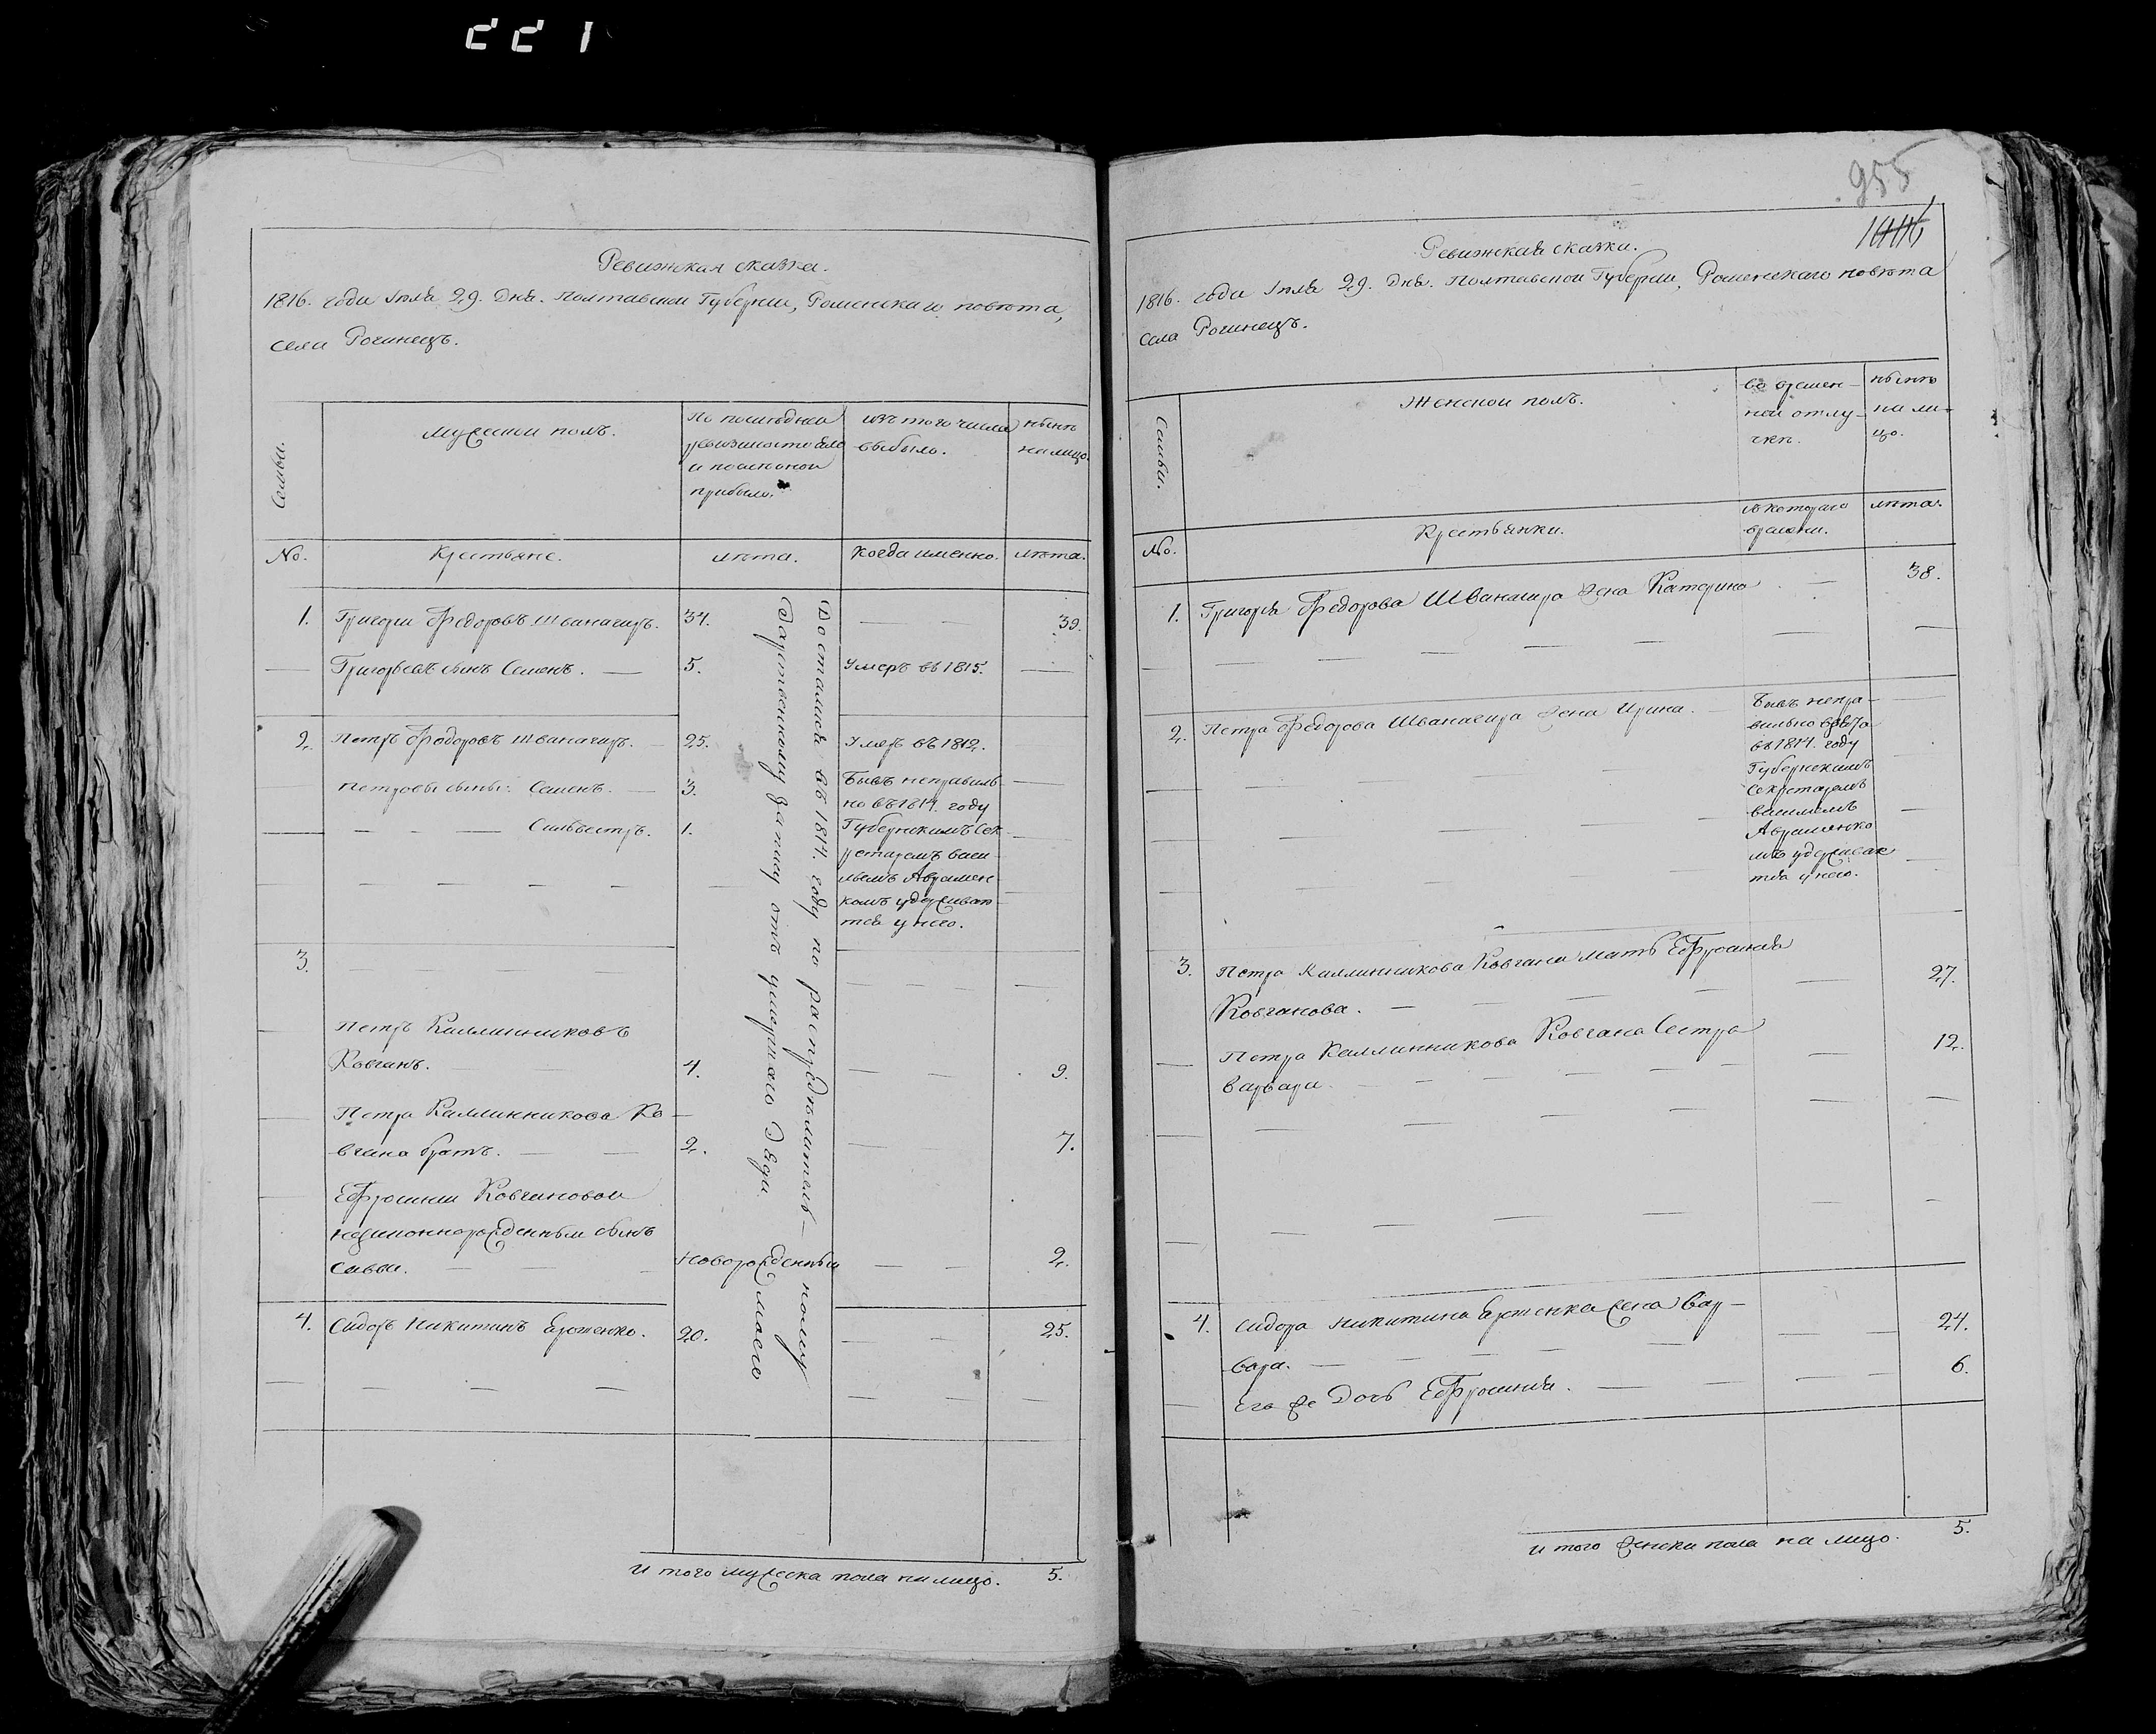 221
Ревижская сказка.
1816. года Iюля 29. Дня. Полтавской Губернии, Роменскаго повѣта,
села Рогинецъ.
Семьи.
Мужеской полъ.
По последней
ревизии состояло
и после оной
прибыло.
изъ того числа
выбыло.
нынѣ
на лицо.
No.
Крестьяне.
лѣта.
когда именно.
лѣта.
1. Григорий Федоровъ Шванагиръ. 34. — — 39.
— Григорьевъ сынъ Семенъ. — 5. Умеръ въ 1815. —
2. Петръ Федоровъ Шванагиръ. — 25. Умеръ въ 1812. —
Петровы сыны: Семенъ. — 3.
— — — Сильвестръ. 1.
Бывъ неправиль-
но въ 1814. году
Губернскимъ Сек-
ретаремъ Васи-
льемъ Авримен-
комъ удерживаю-
тся у него.
3.
Петръ Каллинниковъ
Ковганъ. 4. — — 9.
Петра Каллинникова Ко-
вгана братъ. — — 2. — 7.
Ефросинии Ковгановой
незаконнорожденный сынъ
Савва. — — Новорожденный — — 2.
4. Сидоръ Никитинъ Ярошенко. 20. — — 25.
Достались въ 1814. году по распределитель-
ному
Дарственному запису отъ умершаго Дяди
моего
И того мужеска пола на лицо. 5.
955
Ревижская сказка.
1816. года Iюля 29. Дня. Полтавской Губернии, Роменскаго повѣта
села Рогинецъ.
Семьи.
Женской полъ.
во времен-
ной отлу-
чкѣ.
нынѣ
на ли-
цо.
No.
Крестьянки.
съ котораго
времени.
лѣта.
1. Григорiя Федорова Шванагира жена Катерина — 38.
2. Петра Федорова Шванагира жена Ирина. —
Бывъ непра-
вильно взята
въ 1814. году
Губернскимъ
Секретаремъ
Василiемъ
Авраменко
мъ удержевае
тся у него.
3. Петра Каллинникова Ковгана мать Ефросинiя
Ковганова. — 27.
Петра Каллинникова Ковгана Сестра
Варвара. — 12.
4. Сидора Никитина Ярошенка жена Вар-
вара. — 24.
Его же Дочь Ефросинiя. — 6.
И того женска пола на лицо. 5.